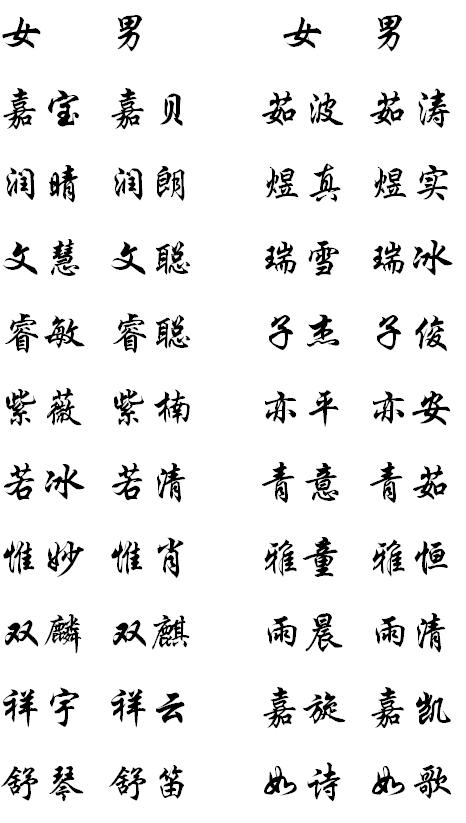 女 男 女 男
嘉宝 嘉贝 茹波 茹涛
润晴 润朗 煜真 煜实
文慧 文聪 瑞雪 瑞冰
睿敏 睿聪 子杰 子俊
紫薇 紫楠 亦平 亦安
若冰 若清 青意 青茹
惟妙 惟肖 雅童 雅恒
双麟 双麒 雨晨 雨清
祥宇 祥云 嘉旋 嘉凯
舒琴 舒笛 如诗 如歌